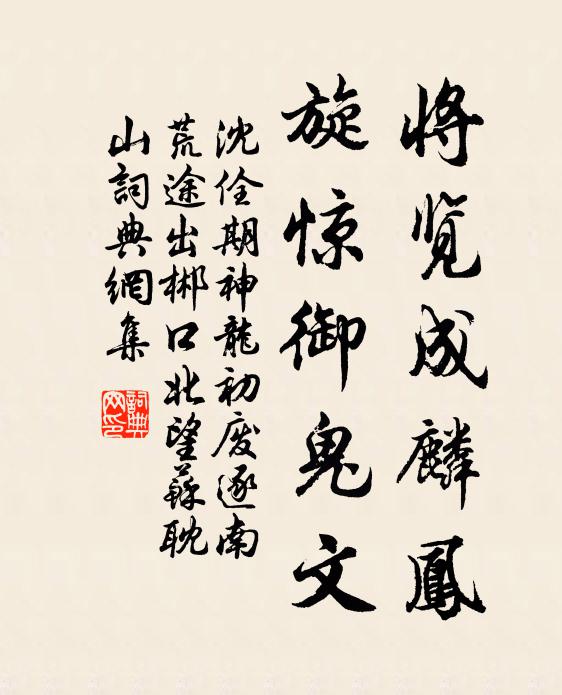 将览成麟鳳
旋惊御鬼文
沈佺期神龍初废逐南
荒途出郴口北望蘇耽
山詞典網集
詞典
网印